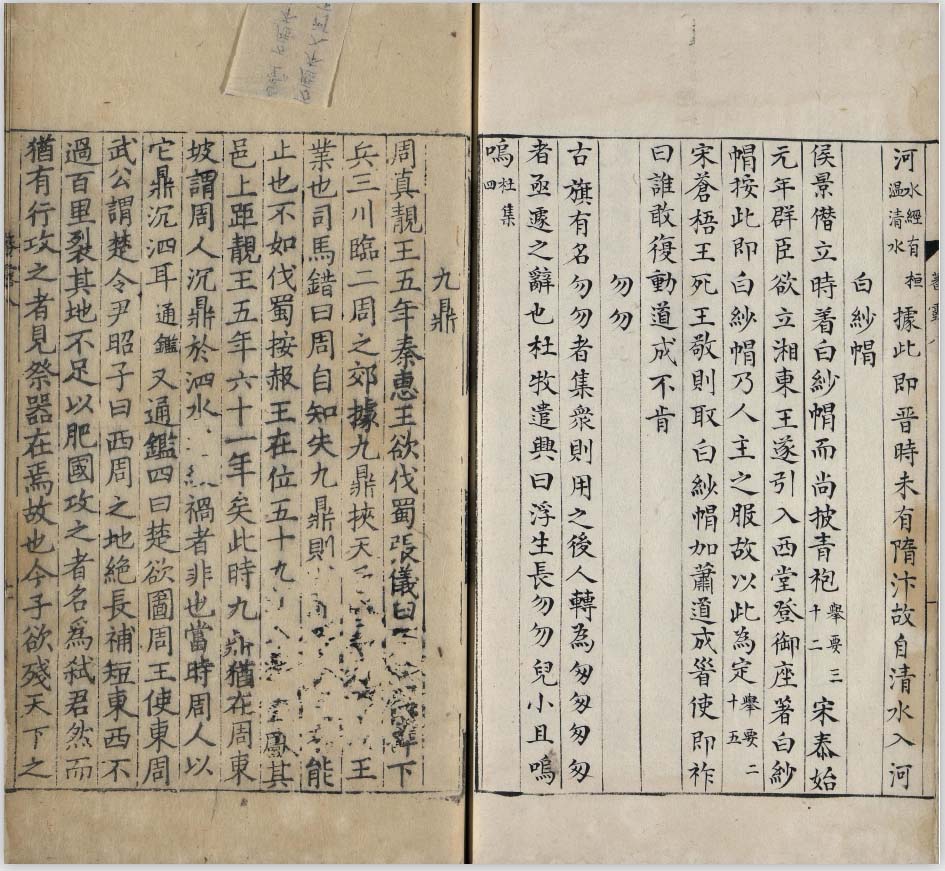 河水經有桓溫清水據此即晉時未有隋汴故自清水入河
白紗帽
侯景僭立時着白紗帽而尚披青袍舉要三十二宋泰始
元年群臣欲立湘東王遂引入西堂登御座著白紗
帽按此即白紗帽乃人主之服故以此為定舉要二十五
宋蒼梧王死王敬則取白紗帽加蕭道成䯻使即祚
曰誰敢復動道成不肯
勿勿
古旗有名勿勿者集衆則用之後人轉為匆匆匆匆
者亟遽之辭也杜牧遣興曰浮生長勿勿兒小且嗚
嗚杜集四
九鼎
周真靚王五年秦惠王欲伐蜀張儀曰下
兵三川臨二周之郊據九鼎挾天王
業也司馬錯曰周自知失九鼎則能
止也不如伐蜀按赧王在位五十九其
邑上距靚王五年六十一年矣此時九鼎猶在周東
坡謂周人沉鼎於泗水禍者非也當時周人以
它鼎沉泗耳通鑑又通鑑四曰楚欲圖周王使東周
武公謂楚令尹昭子曰西周之地絶長補短東西不
過百里裂其地不足以肥國攻之者名為弑君然而
猶有行攻之者見祭器在焉故也今子欲殘天下之